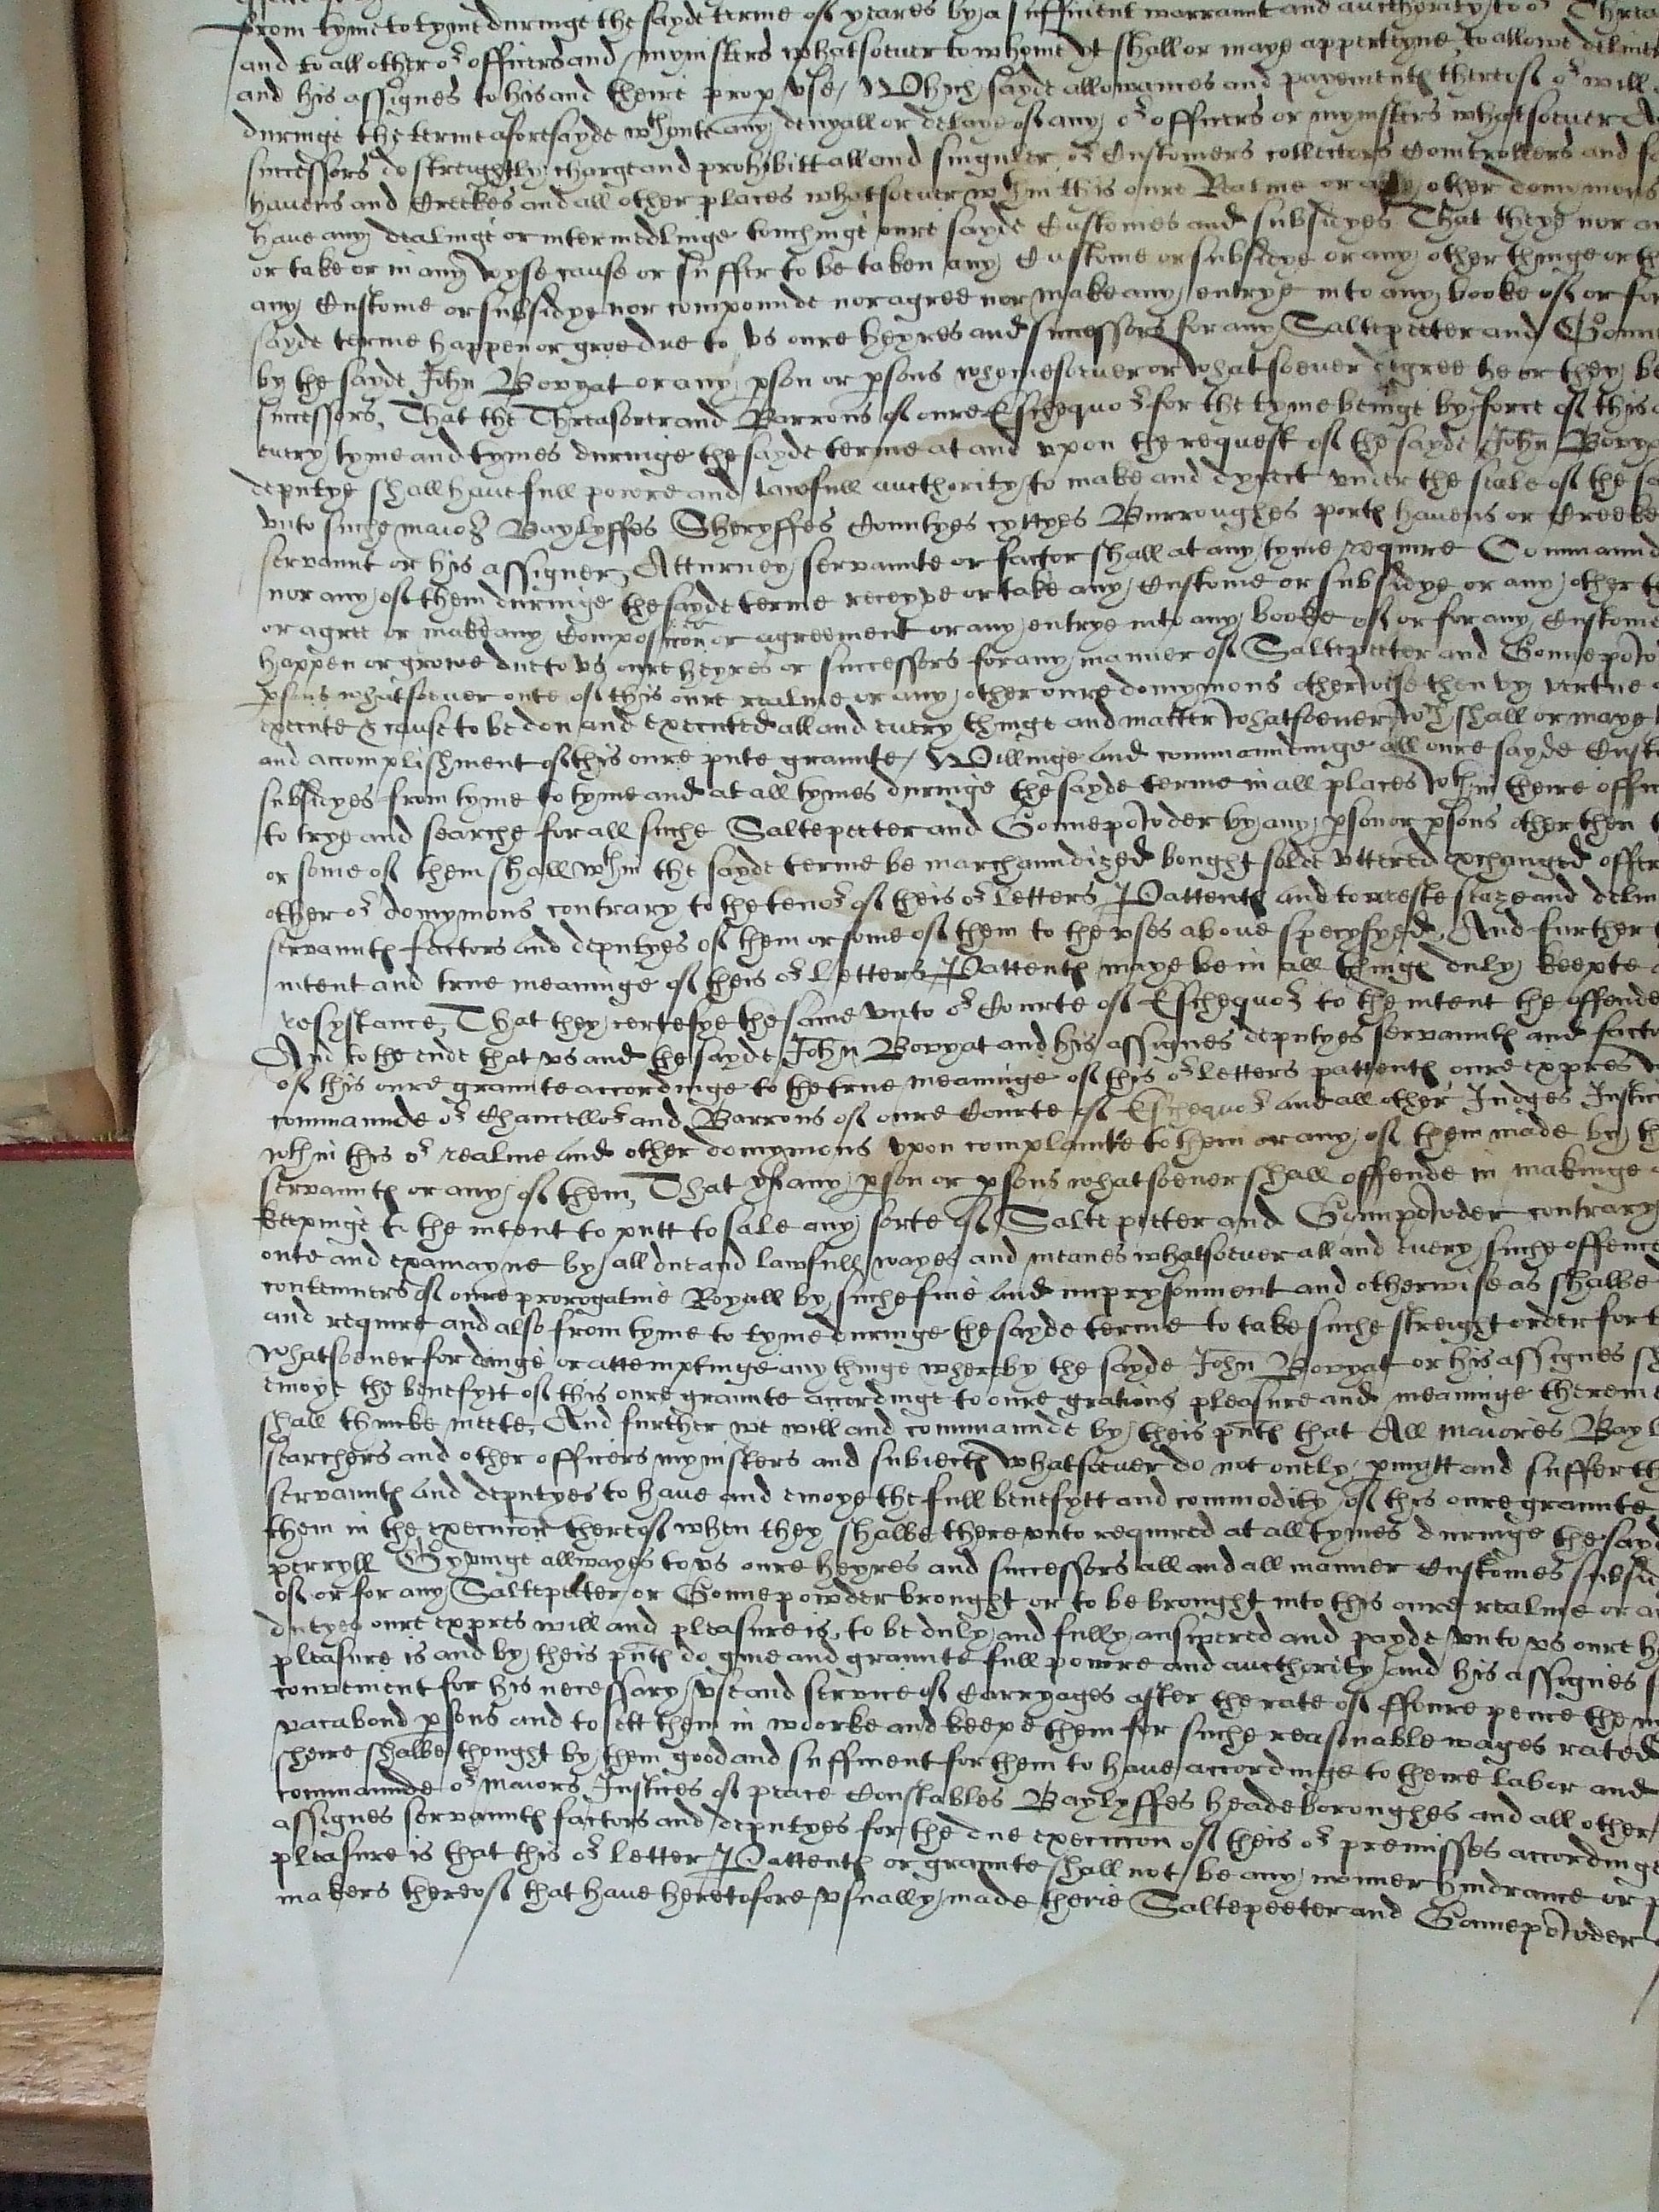 from tyme to tyme duringe the sayde terme of yeares by a sufficient warraunt and aucthority to or Threa
and to all other or officers and mynisters whatsoeuer to whome yt shall or maye apperteyne to allowe deliuer
and his assignes to his and theire prop vse, Which sayde allowances and payementes thereof or will
duringe the terme aforesayde wthoute any denyall or delaye of any or officers or mynisters whatsoeuer
successors do streyghtly charge and prohibitt all and singuler or Customers collectors Comtrollers and
havens and Creekes and all other places whatsoeuer wthin this oure Realme or any other domynions
haue any dealinge or intermedlinge touchinge oure sayde Customes and subsidyes That theye nor
or take or in any wyse cause or suffer to be taken any Custome or subsidye or any other thinge or
any Custome or subsidye nor compounde nor agree nor make any entrye into any booke of or for
sayde terme happen or groe due to vs oure heyres and successors for any Saltepeeter and Gonne
by the sayde John Bovyat or any pson or psons whomesoeuer or whatsoeuer degree he or they be
successors, That the Threasorer and Barrons of oure Eschequor for the tyme beinge by force of this
euery tyme and tymes duringe the sayde terme at and vpon the request of the sayde John Bovy
deputye shall haue full powre and lawfull aucthority to make and dyrect vnder the seale of the
vnto suche maior Baylyffes Sheryffes Countyes cyttyes Burroughes portes havens or Creeke
servaunt or his assigner, Atturney servaunte or factor shall at any tyme require Commaund
nor any of them duringe the sayde terme receyve or take any Custome or subsidye or any other
or agree or make any Composicon or agreement or any entrye into any booke of or for any Custome
happen or growe due to vs oure heyres or successors for any manner of Saltepeeter and Gonnepow
psons whatsoeuer oute of this oure realme or any other oure domynions otherwise then by vertue
execute & cause to be don and executed all and euery thinge and matter whatsoeuer wch shall or maye
and accomplishment of this oure pnte graunte, Willinge and commaundinge all oure sayde Custo
subsidyes from tyme to tyme and at all tymes duringe the sayde terme in all places wthin theire offic
to trye and searche for all suche Saltepeeter and Gonnepowder by any pson or psons other then
or some of them shall wthin the sayde terme be marchaundized bought solde vttered exchanged offer
other or domynions contrary to the tenor of theis or letters Pattentes and to areste seaze and deliu
servauntes factors and deputyes of them or some of them to the vses aboue specyfyed, And further
intent and true meaninge of theis or Letters Pattentes maye be in all thinges duly keepte
resystance, That they certefye the same vnto or Courte of Eschequor to the intent the offende
And to the ende that vs and the sayde John Bovyat and his assignes deputyes servauntes and facto
of this oure graunte accordinge to the true meaninge of this or letters pattentes oure expres
commaunde or Chancellor and Barrons of oure Courte of Eschequor and all other Judges Justic
wthin this or realme and other domynions vpon complainte to them or any of them made by
servauntes or any of them, That yf any pson or psons whatsoeuer shall offende in makinge
keepinge to the intent to putt to sale any sorte of Saltepeeter and Gonnpowder contrary
oute and examayne by all due and lawfull wayes and meanes whatsoeuer all and euery suche offence
contemners of oure prorogatiue Royall by suche fine and imprysonment and otherwise as shalbe
and require and also from tyme to tyme duringe the sayde terme to take suche streight order for
whatsoeuer for doinge or attemptinge any thinge whereby the sayde John Bovyat or his assignes
enioye the benefytt of this oure graunte accordinge to oure gratious pleasure and meaninge therein
shall thincke meete, And further we will and commaunde by theis pntes that All maiores Bayl
searchers and other officers mynisters and subiectes whatsoeuer do not onely pmytt and suffer
servauntes and deputyes to haue and enioye the full benefytt and commodity of this oure graunte
them in the execucion thereof when they shalbe therevnto required at all tymes duringe the sayd
perryll Gyvinge allwayes to vs oure heyres and successors all and all manner Customes subsid
of or for any Saltepeeter or Gonnepowder brought or to be brought into this oure realme or
dutyes oure expres will and pleasure is, to be duly and fully answered and payde vnto vs oure
pleasure is and by theis pntes do giue and graunte full powre and aucthority and his assignes
convenient for his necessary vse and service of Carryages after the rate of ffoure pence the
vacabond psons and to sett them in woorke and keepe them for suche reasonable wages rated
sheire shalbe thought by them good and sufficient for them to haue accordinge to theire labor and
commaunde or maiors Justices of peace Constables Baylyffes headeboroughes and all other
assignes servauntes factors and deputyes for the due execucion of theis or premisses accordinge
pleasure is that this or letter Pattentes or graunte shall not be any manner hindrance or
makers thereof that haue heretofore vsually made therie Saltepeeter and Gonnepowder